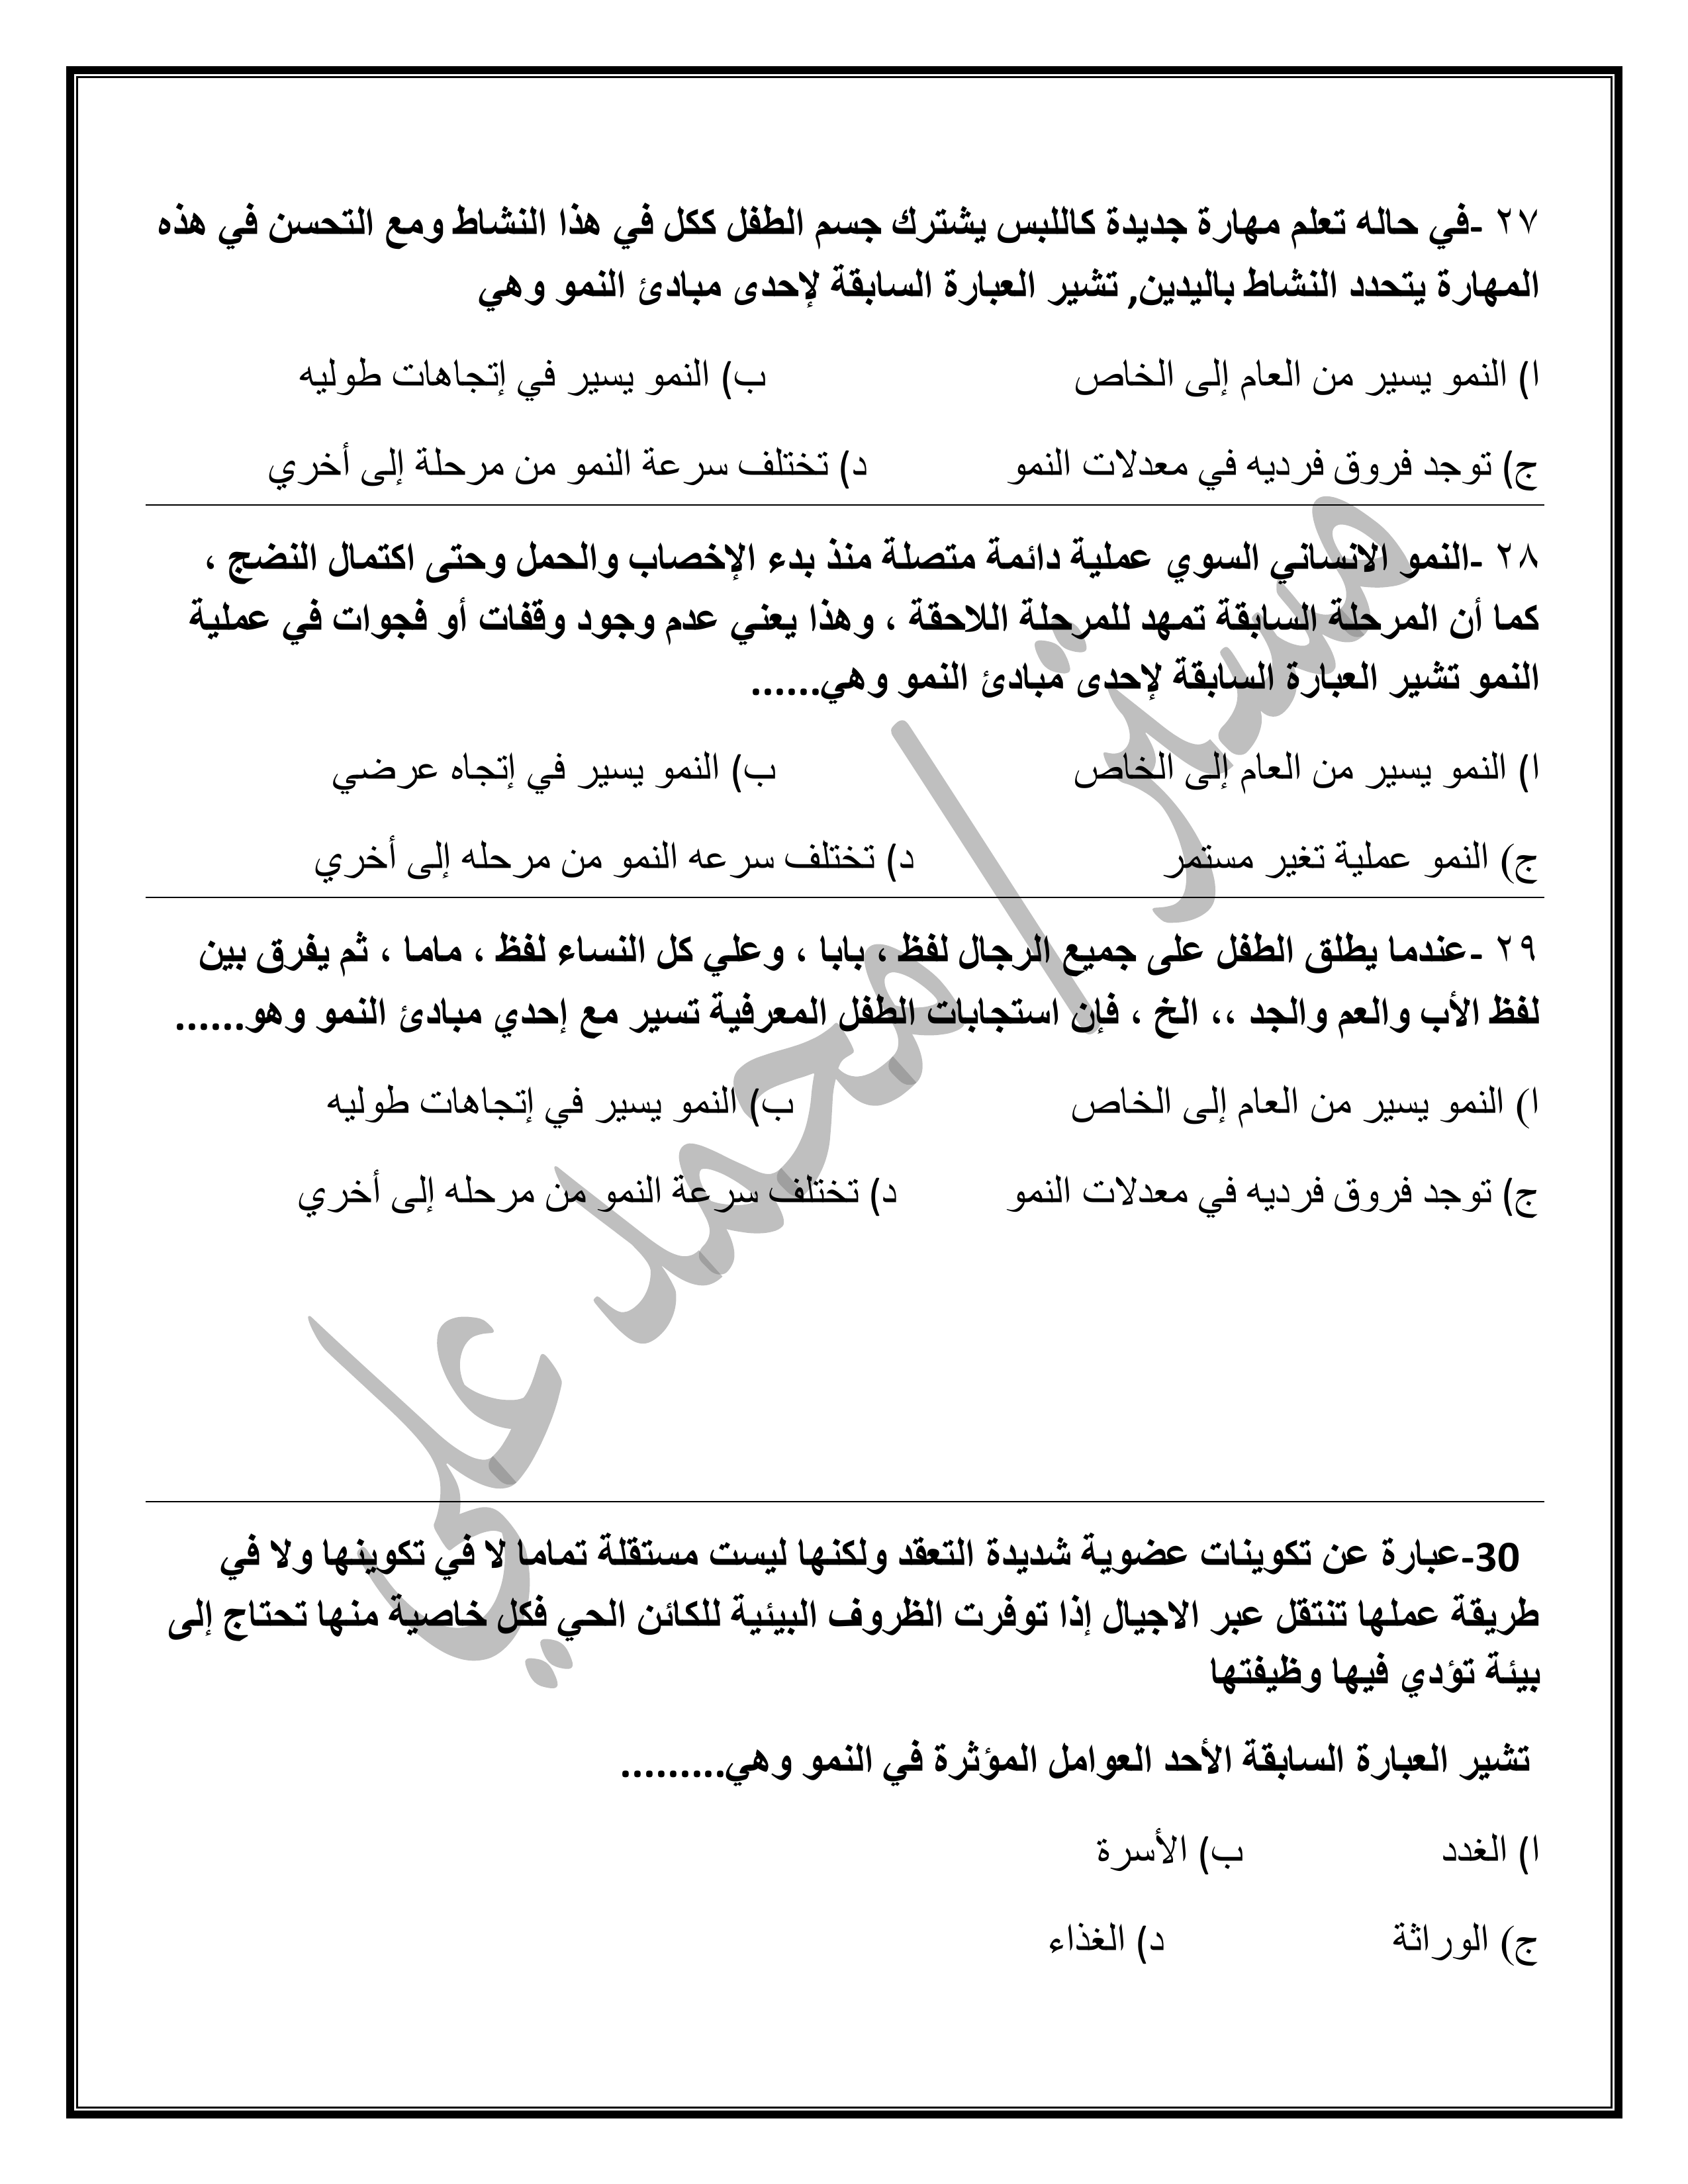 ٢٧ -في حاله تعلم مهارة جديدة كاللبس يشترك جسم الطفل ككل في هذا النشاط ومع التحسن في هذه
المهارة يتحدد النشاط باليدين, تشير العبارة السابقة لإحدى مبادئ النمو وهي
ا) النمو يسير من العام إلى الخاص ب) النمو يسير في إتجاهات طوليه
ج) توجد فروق فرديه في معدلات النمو د) تختلف سرعة النمو من مرحلة إلى أخري
٢٨ -النمو الانساني السوي عملية دائمة متصلة منذ بدء الإخصاب والحمل وحتى اكتمال النضج ،
كما أن المرحلة السابقة تمهد للمرحلة اللاحقة ، وهذا يعني عدم وجود وقفات أو فجوات في عملية
النمو تشير العبارة السابقة لإحدى مبادئ النمو وهي......
ا) النمو يسير من العام إلى الخاص ب) النمو يسير في إتجاه عرضي
ج) النمو عملية تغير مستمر د) تختلف سرعه النمو من مرحله إلى أخري
٢٩ -عندما يطلق الطفل على جميع الرجال لفظ ، بابا ، وعلي كل النساء لفظ ، ماما ، ثم يفرق بين
لفظ الأب والعم والجد ،، الخ ، فإن استجابات الطفل المعرفية تسير مع إحدي مبادئ النمو وهو......
ا) النمو يسير من العام إلى الخاص ب) النمو يسير في إتجاهات طوليه
ج) توجد فروق فرديه في معدلات النمو د) تختلف سرعة النمو من مرحله إلى أخري
30-عبارة عن تكوينات عضوية شديدة التعقد ولكنها ليست مستقلة تماما لا في تكوينها ولا في
طريقة عملها تنتقل عبر الاجيال إذا توفرت الظروف البيئية للكائن الحي فكل خاصية منها تحتاج إلى
بيئة تؤدي فيها وظيفتها
تشير العبارة السابقة الأحد العوامل المؤثرة في النمو وهي.........
ا) الغدد ب) الأسرة
ج) الوراثة د) الغذاء
مستر / محمد علي